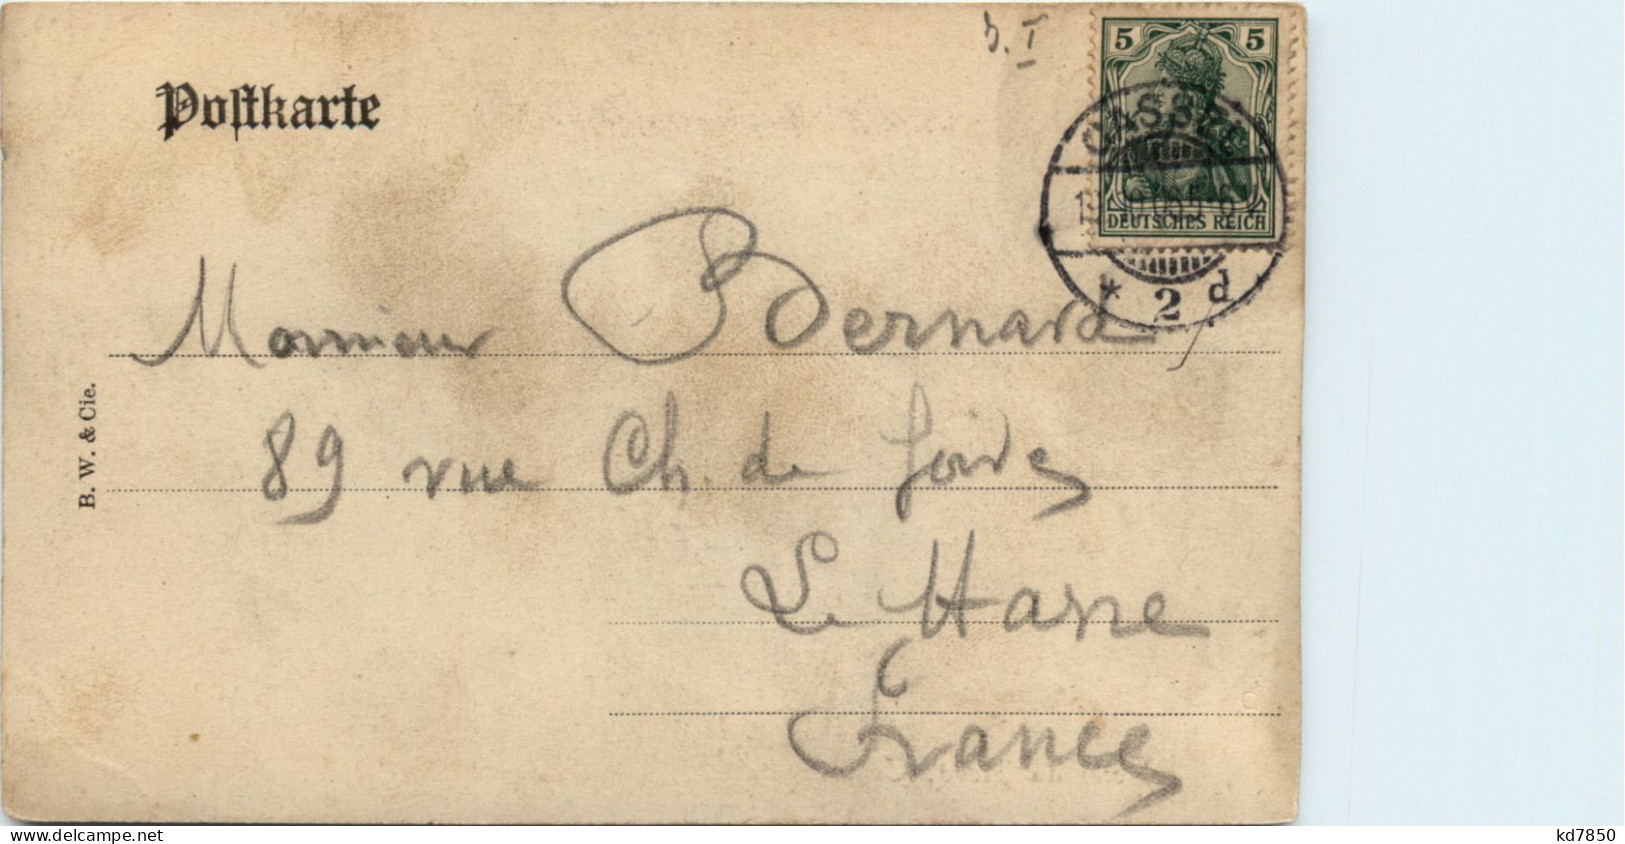 Postkarte
b. I
5 5
CASSEL
DEUTSCHES REICH
* 2 d
Monsieur Bernard
89 rue Ch. de
Le Havre
France
B. W. & Cie.
www.delcampe.net
kd7850